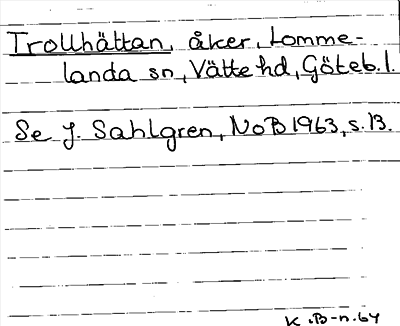 Trollhättan, åker, Lomme-
landa sn, Vätte hd, Göteb. l.
Se J. Sahlgren, NoB 1963, s. 13.
K.B-n. 64